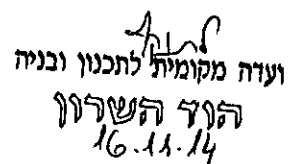 ועדה מקומית לתכנון ובניה
הוד השרון
16.11.14